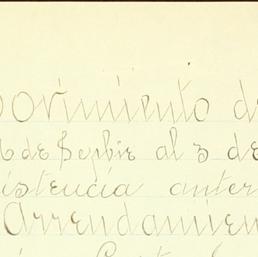 ovimiento d
de Sepbre al 3 de
istencia anter
Arrendamien